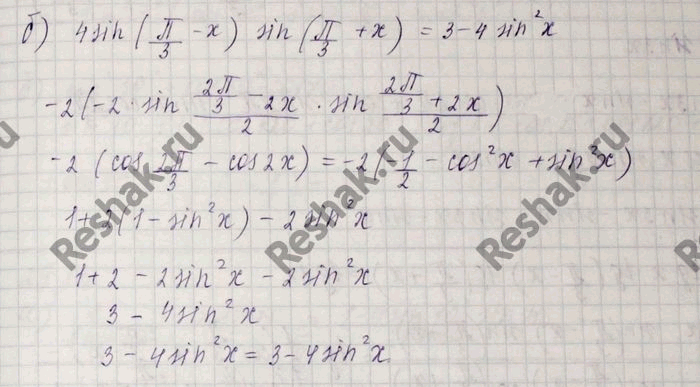 б) 4 sin (π/3 - x) sin (π/3 + x) = 3 - 4 sin²x
-2 (-2 · sin (2π/3 - 2x)/2 · sin (2π/3 + 2x)/2)
-2 (cos 2π/3 - cos 2x) = -2 (-1/2 - cos²x + sin²x)
1 + 2(1 - sin²x) - 2 sin²x
1 + 2 - 2 sin²x - 2 sin²x
3 - 4 sin²x
3 - 4 sin²x = 3 - 4 sin²x
Reshak.ru
Reshak.ru
Reshak.ru